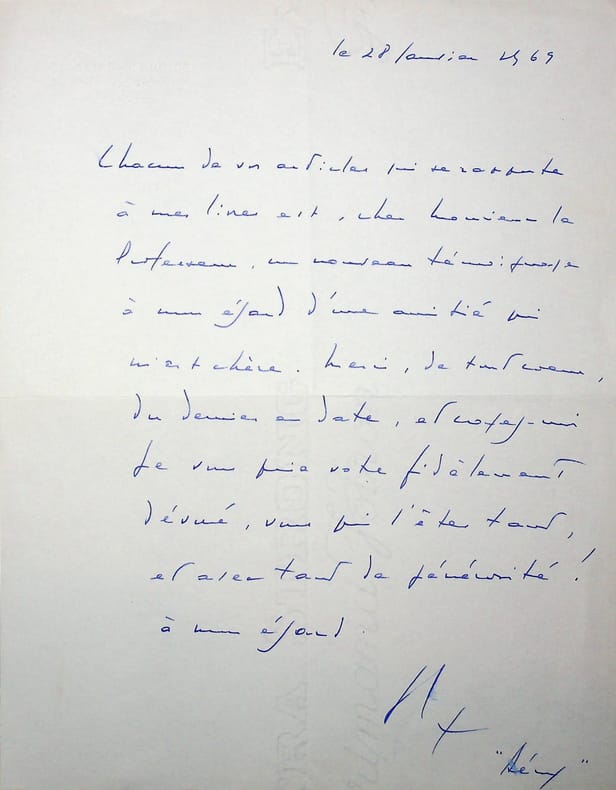 le 28 Janvier 1969
Chacun de vos articles qui se rapporte
à mes livres est, cher Monsieur le
Professeur, un nouveau témoignage
à mon égard d'une amitié qui
m'est chère. Merci, de tout coeur,
du dernier en date, et croyez-moi
je vous prie votre fidèlement
dévoué, vous qui l'êtes tant,
et avec tant de générosité !
à mon égard.
"Rémy"